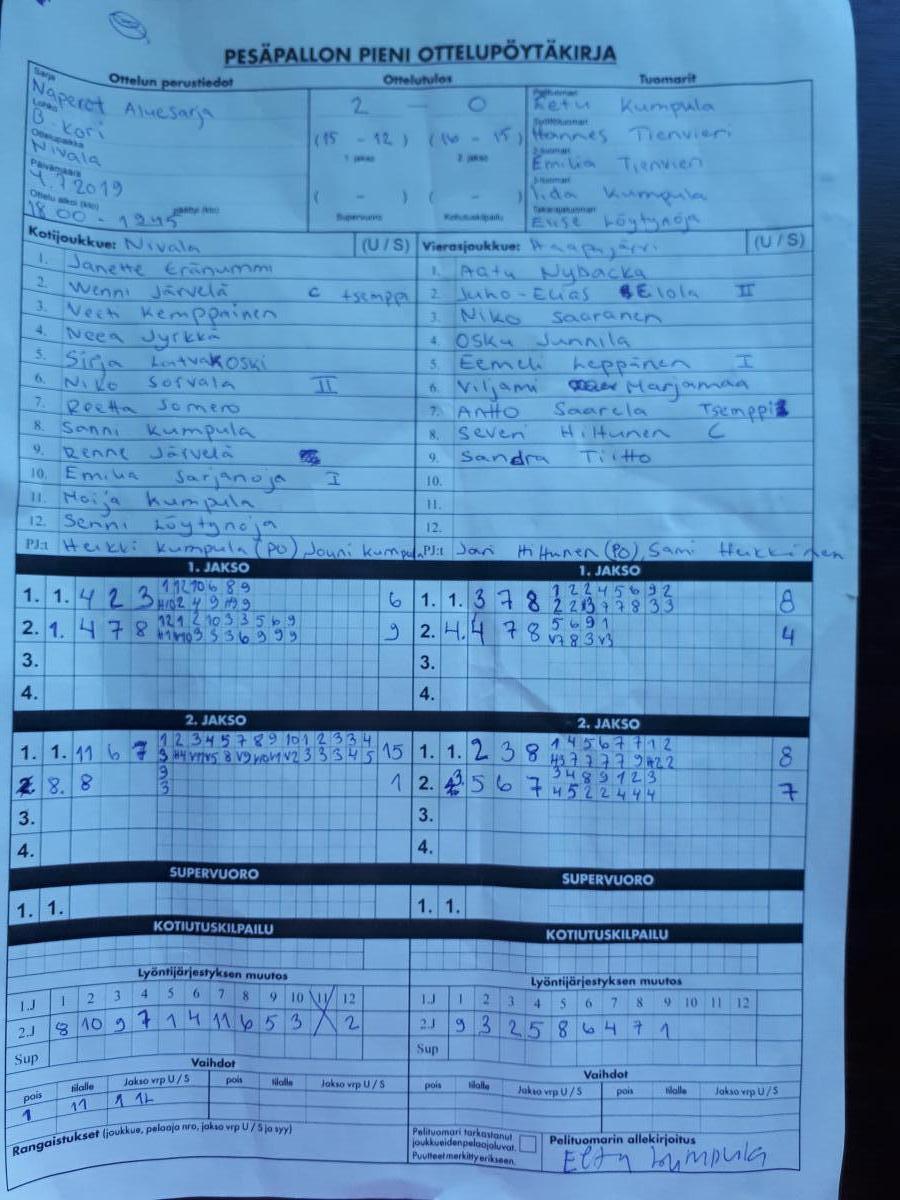 PESÄPALLON PIENI OTTELUPÖYTÄKIRJA
Ottelun perustiedot Ottelutulos Tuomarit
Sarja
Naperot Aluesarja
Lohko
B-kori
Ottelupaikka
Nivala
Päivämäärä
4.7.2019
Ottelu alkoi (klo) päättyi (klo)
18.00 - 19.45
2 - 0
(15 - 12) (16 - 15)
1. jakso 2. jakso
( - ) ( - )
Supervuoro Kotiutuskilpailu
Pelituomari
Eetu Kumpula
Syöttötuomari
Hannes Tienvieri
2-tuomari
Emilia Tienvieri
3-tuomari
Iida Kumpula
Takarajatuomari
Elise Löytynoja
Kotijoukkue: Nivala (U / S) Vierasjoukkue: Haapajärvi (U / S)
1. Janette Eränummi 1. Aatu Nybacka
2. Wenni Järvelä C tsemppi 2. Juho-Elias Elola II
3. Veeti Kemppainen 3. Niko Saaranen
4. Neea Jyrkkä 4. Osku Junnila
5. Sirja Latvakoski 5. Eemeli Leppänen I
6. Niko Sorvala II 6. Viljami Marjamaa
7. Reetta Somero 7. Antto Saarela Tsemppi
8. Sanni Kumpula 8. Severi Hiltunen C
9. Renne Järvelä 9. Sandra Tiitto
10. Emilia Sarjanoja I 10.
11. Moija Kumpula 11.
12. Senni Löytynoja 12.
PJ:t Heikki Kumpula (PO) Jouni Kumpula PJ:t Jari Hiltunen (PO), Sami Heikkinen
1. JAKSO 1. JAKSO
1. 1. 4 2 3 6 1. 1. 3 7 8 1 2 2 4 5 6 9 2 8
2. 1. 4 7 8 9 2. 4. 4 7 8 5 6 9 1 4
3. 3.
4. 4.
2. JAKSO 2. JAKSO
1. 1. 11 6 7 1 2 3 4 5 7 8 9 10 1 2 3 3 4 15 1. 1. 2 3 8 1 4 5 6 7 7 1 2 8
2. 8. 8 9 1 2. 5 6 7 3 4 8 9 1 2 3 7
3 4 5 2 2 4 4 4
3. 3.
4. 4.
SUPERVUORO SUPERVUORO
1. 1. 1. 1.
KOTIUTUSKILPAILU KOTIUTUSKILPAILU
Lyöntijärjestyksen muutos Lyöntijärjestyksen muutos
1.J 1 2 3 4 5 6 7 8 9 10 11 12 1.J 1 2 3 4 5 6 7 8 9 10 11 12
2.J 8 10 9 7 1 4 11 6 5 3 2 2.J 9 3 2 5 8 6 4 7 1
Sup Sup
Vaihdot Vaihdot
pois tilalle Jakso vrp U / S pois tilalle Jakso vrp U / S pois tilalle Jakso vrp U / S pois tilalle Jakso vrp U / S
1 11
Rangaistukset (joukkue, pelaaja nro, jakso vrp U / S ja syy)
Pelituomari tarkastanut
joukkueiden pelaajaluvat.
Puutteet merkitty erikseen.
Pelituomarin allekirjoitus
Eetu Kumpula